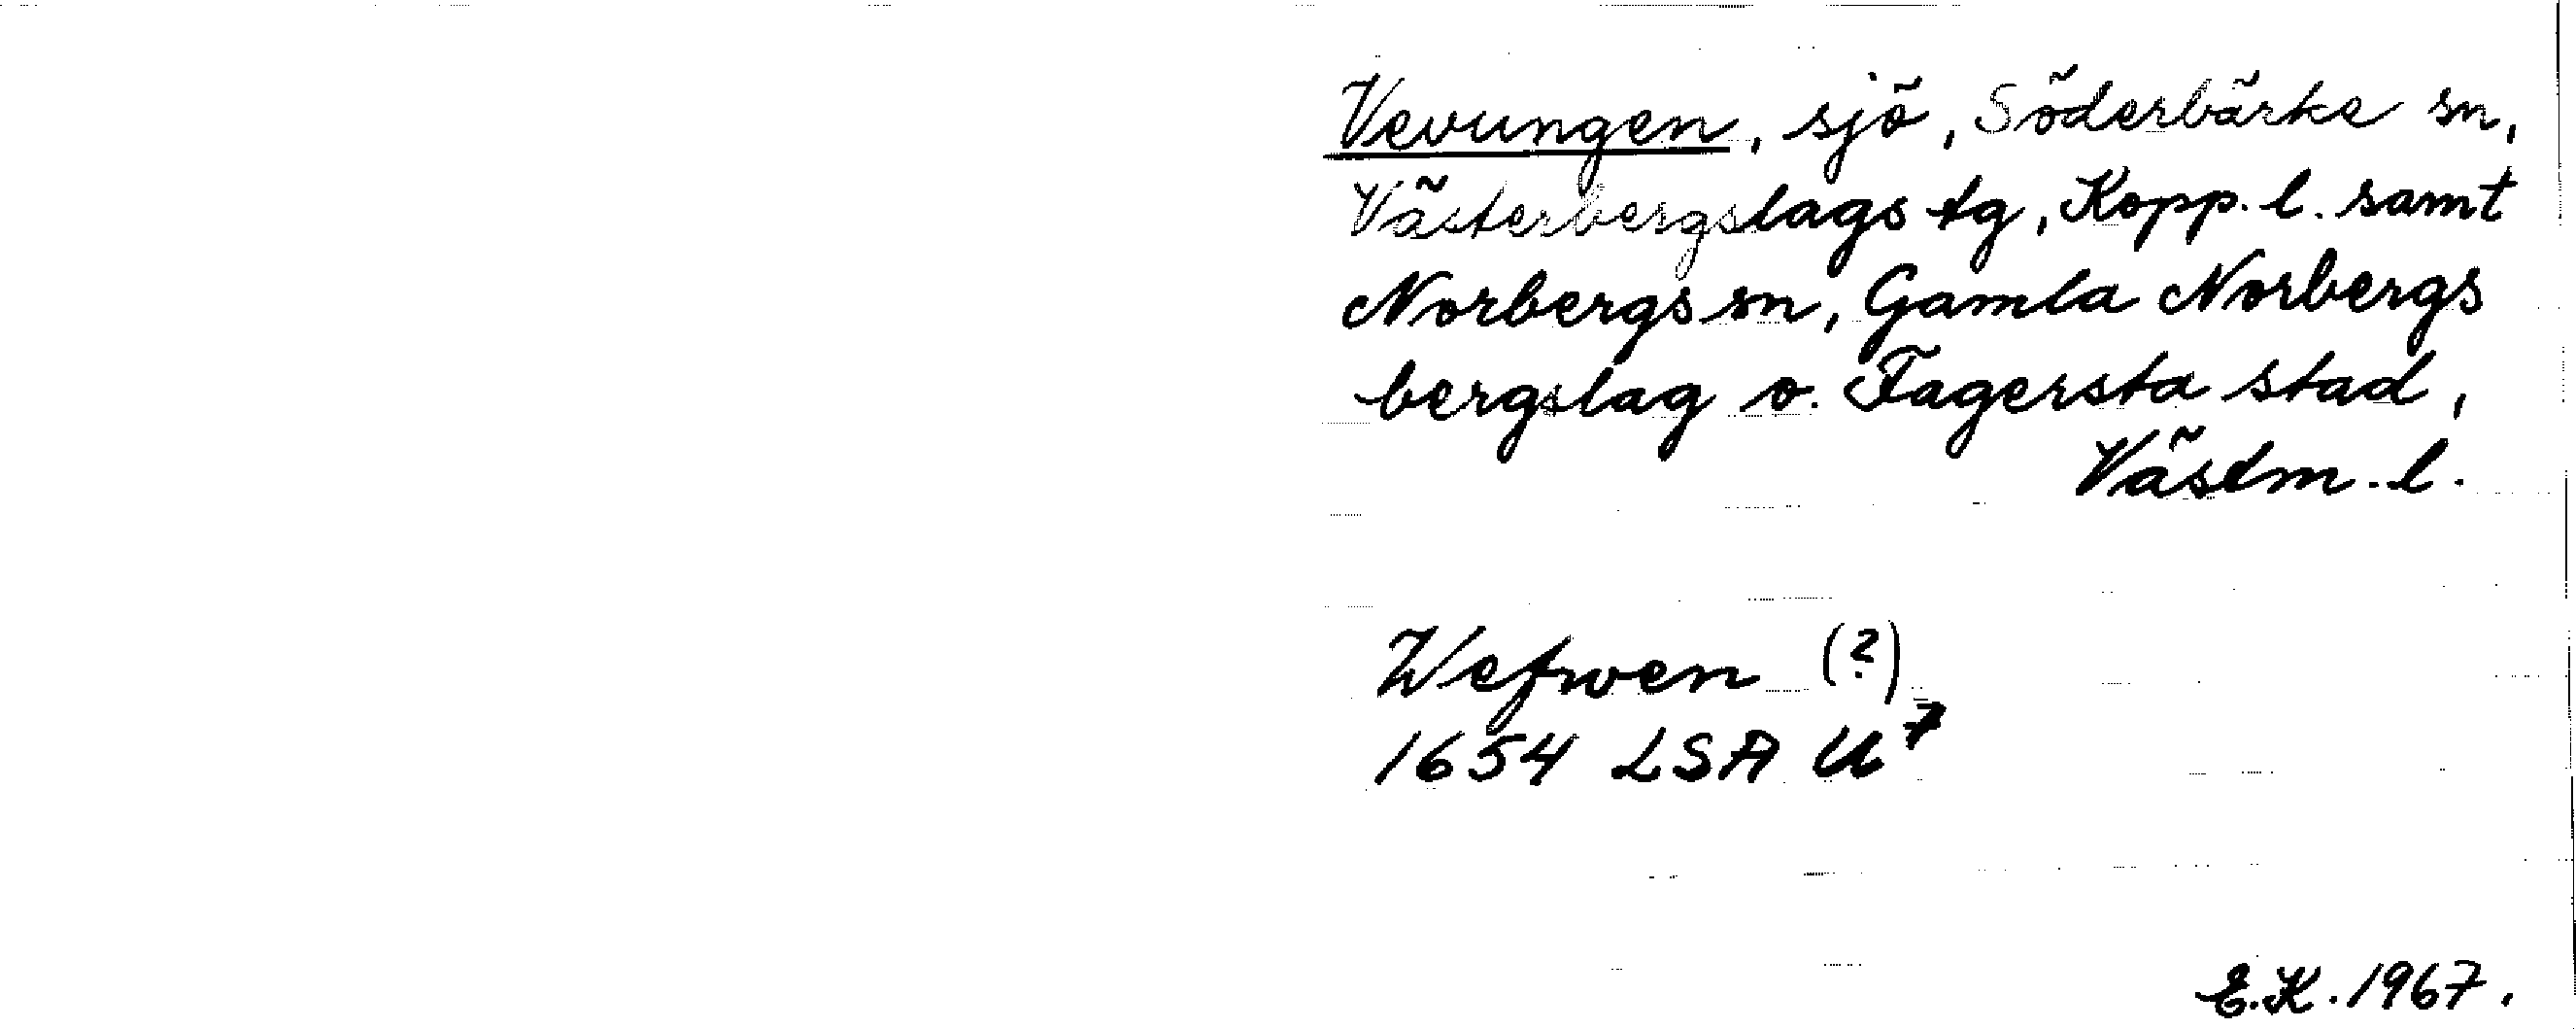 Vevungen, sjö, Söderbärke sn,
Västerbergslags tg, Kopp. l. samt
Norbergs sn, Gamla Norbergs
bergslag o. Fagersta stad,
Västm. l.
Wefwen (?)
1654 LSA U⁷
E.K. 1967.